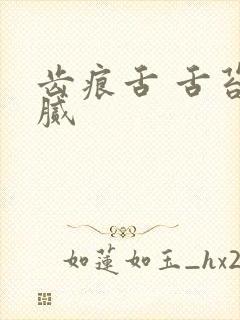 齿痕舌 舌苔
腻
如莲如玉_hx2